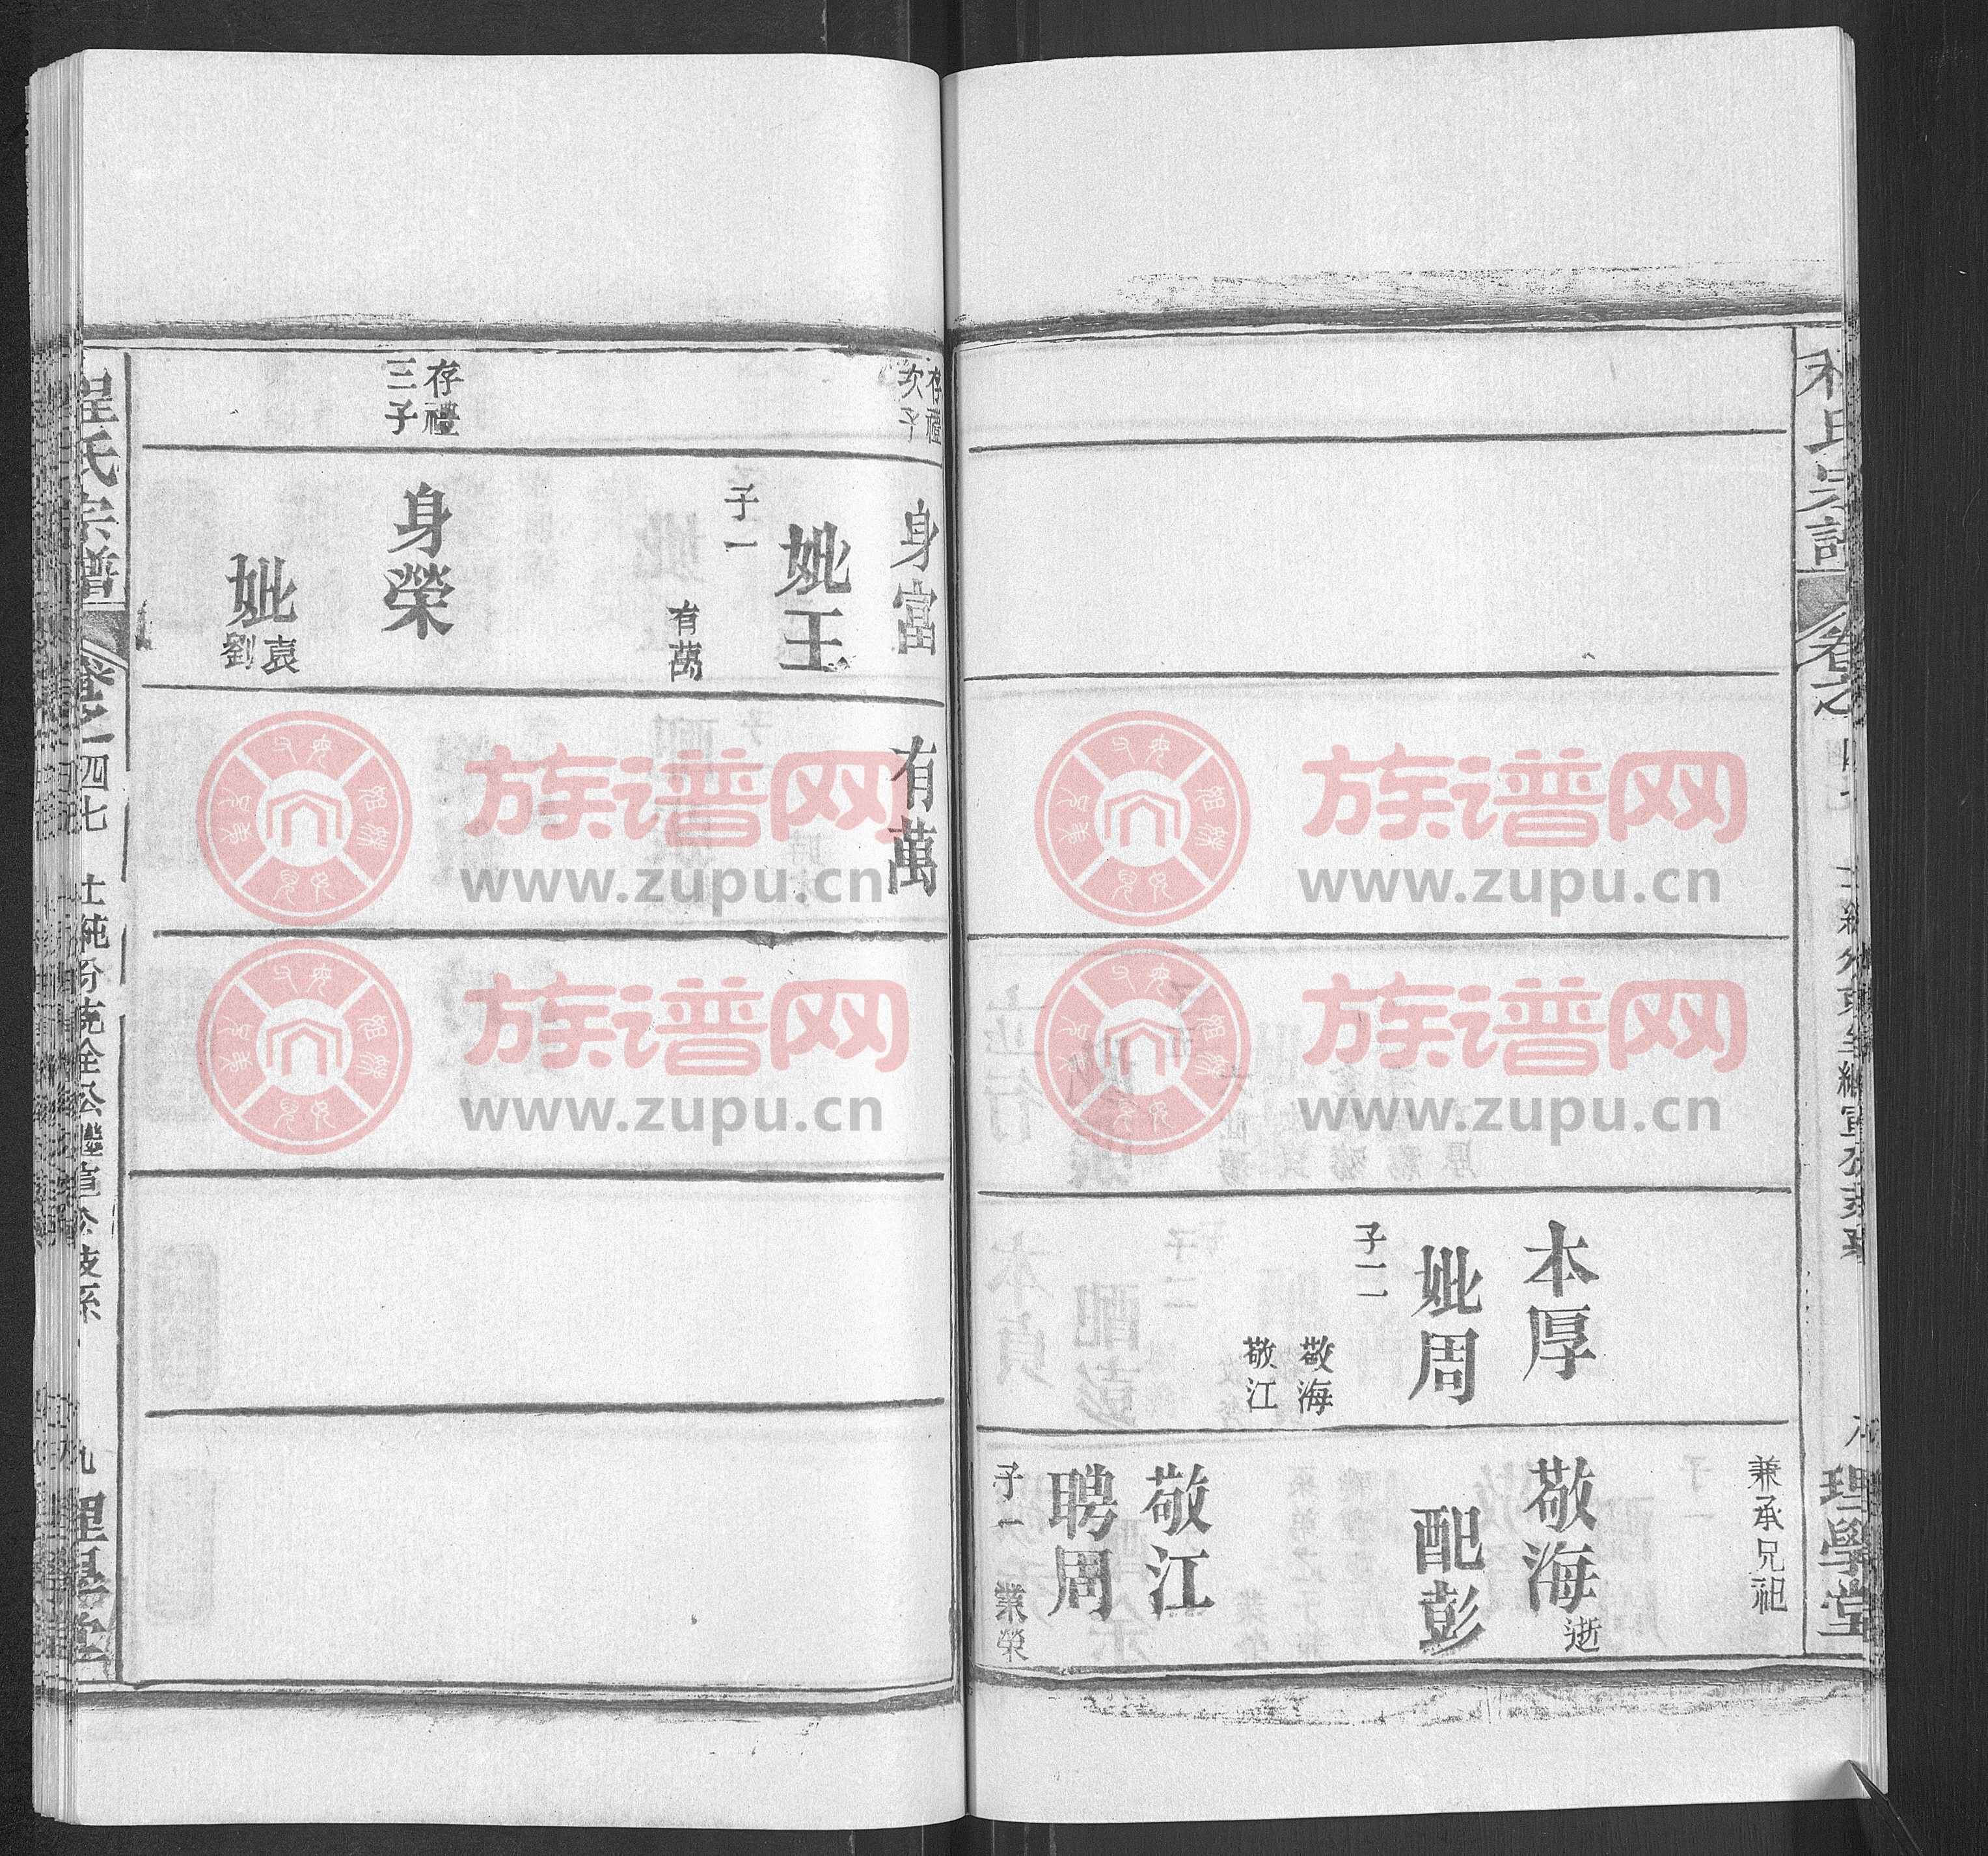 程氏宗譜
卷之
理學堂
本厚
妣周
子二
敬海
敬江
兼承兄祀
敬海逝
配彭
敬江
聘周
子一
業榮
存禮
次子
身富
妣王
子一
有萬
存禮
三子
身榮
妣袁
劉
有萬
程氏宗譜
卷之一四七
士純分克全公繼宣公支系
九
理學堂
族谱网
www.zupu.cn
族谱网
www.zupu.cn
族谱网
www.zupu.cn
族谱网
www.zupu.cn